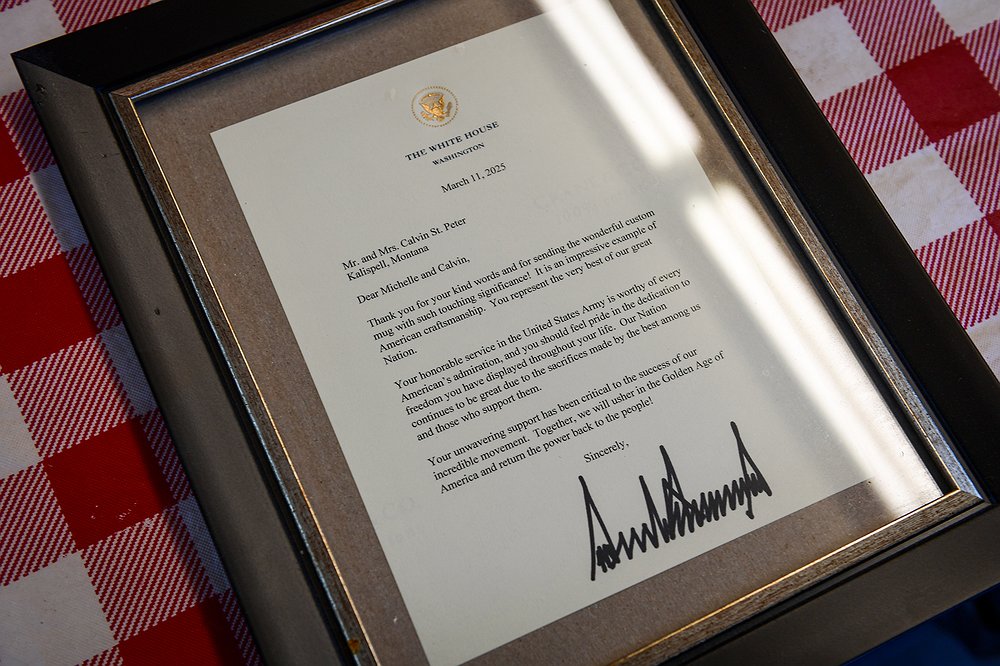 THE WHITE HOUSE
WASHINGTON
March 11, 2025
Mr. and Mrs. Calvin St. Peter
Kalispell, Montana
Dear Michelle and Calvin,
Thank you for your kind words and for sending the wonderful custom
mug with such touching significance! It is an impressive example of
American craftsmanship. You represent the very best of our great
Nation.
Your honorable service in the United States Army is worthy of every
American's admiration, and you should feel pride in the dedication to
freedom you have displayed throughout your life. Our Nation
continues to be great due to the sacrifices made by the best among us
and those who support them.
Your unwavering support has been critical to the success of our
incredible movement. Together, we will usher in the Golden Age of
America and return the power back to the people!
Sincerely,